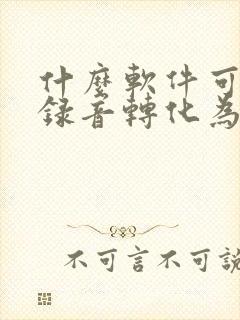 什麼軟件可
錄音轉化為
不可言不可說